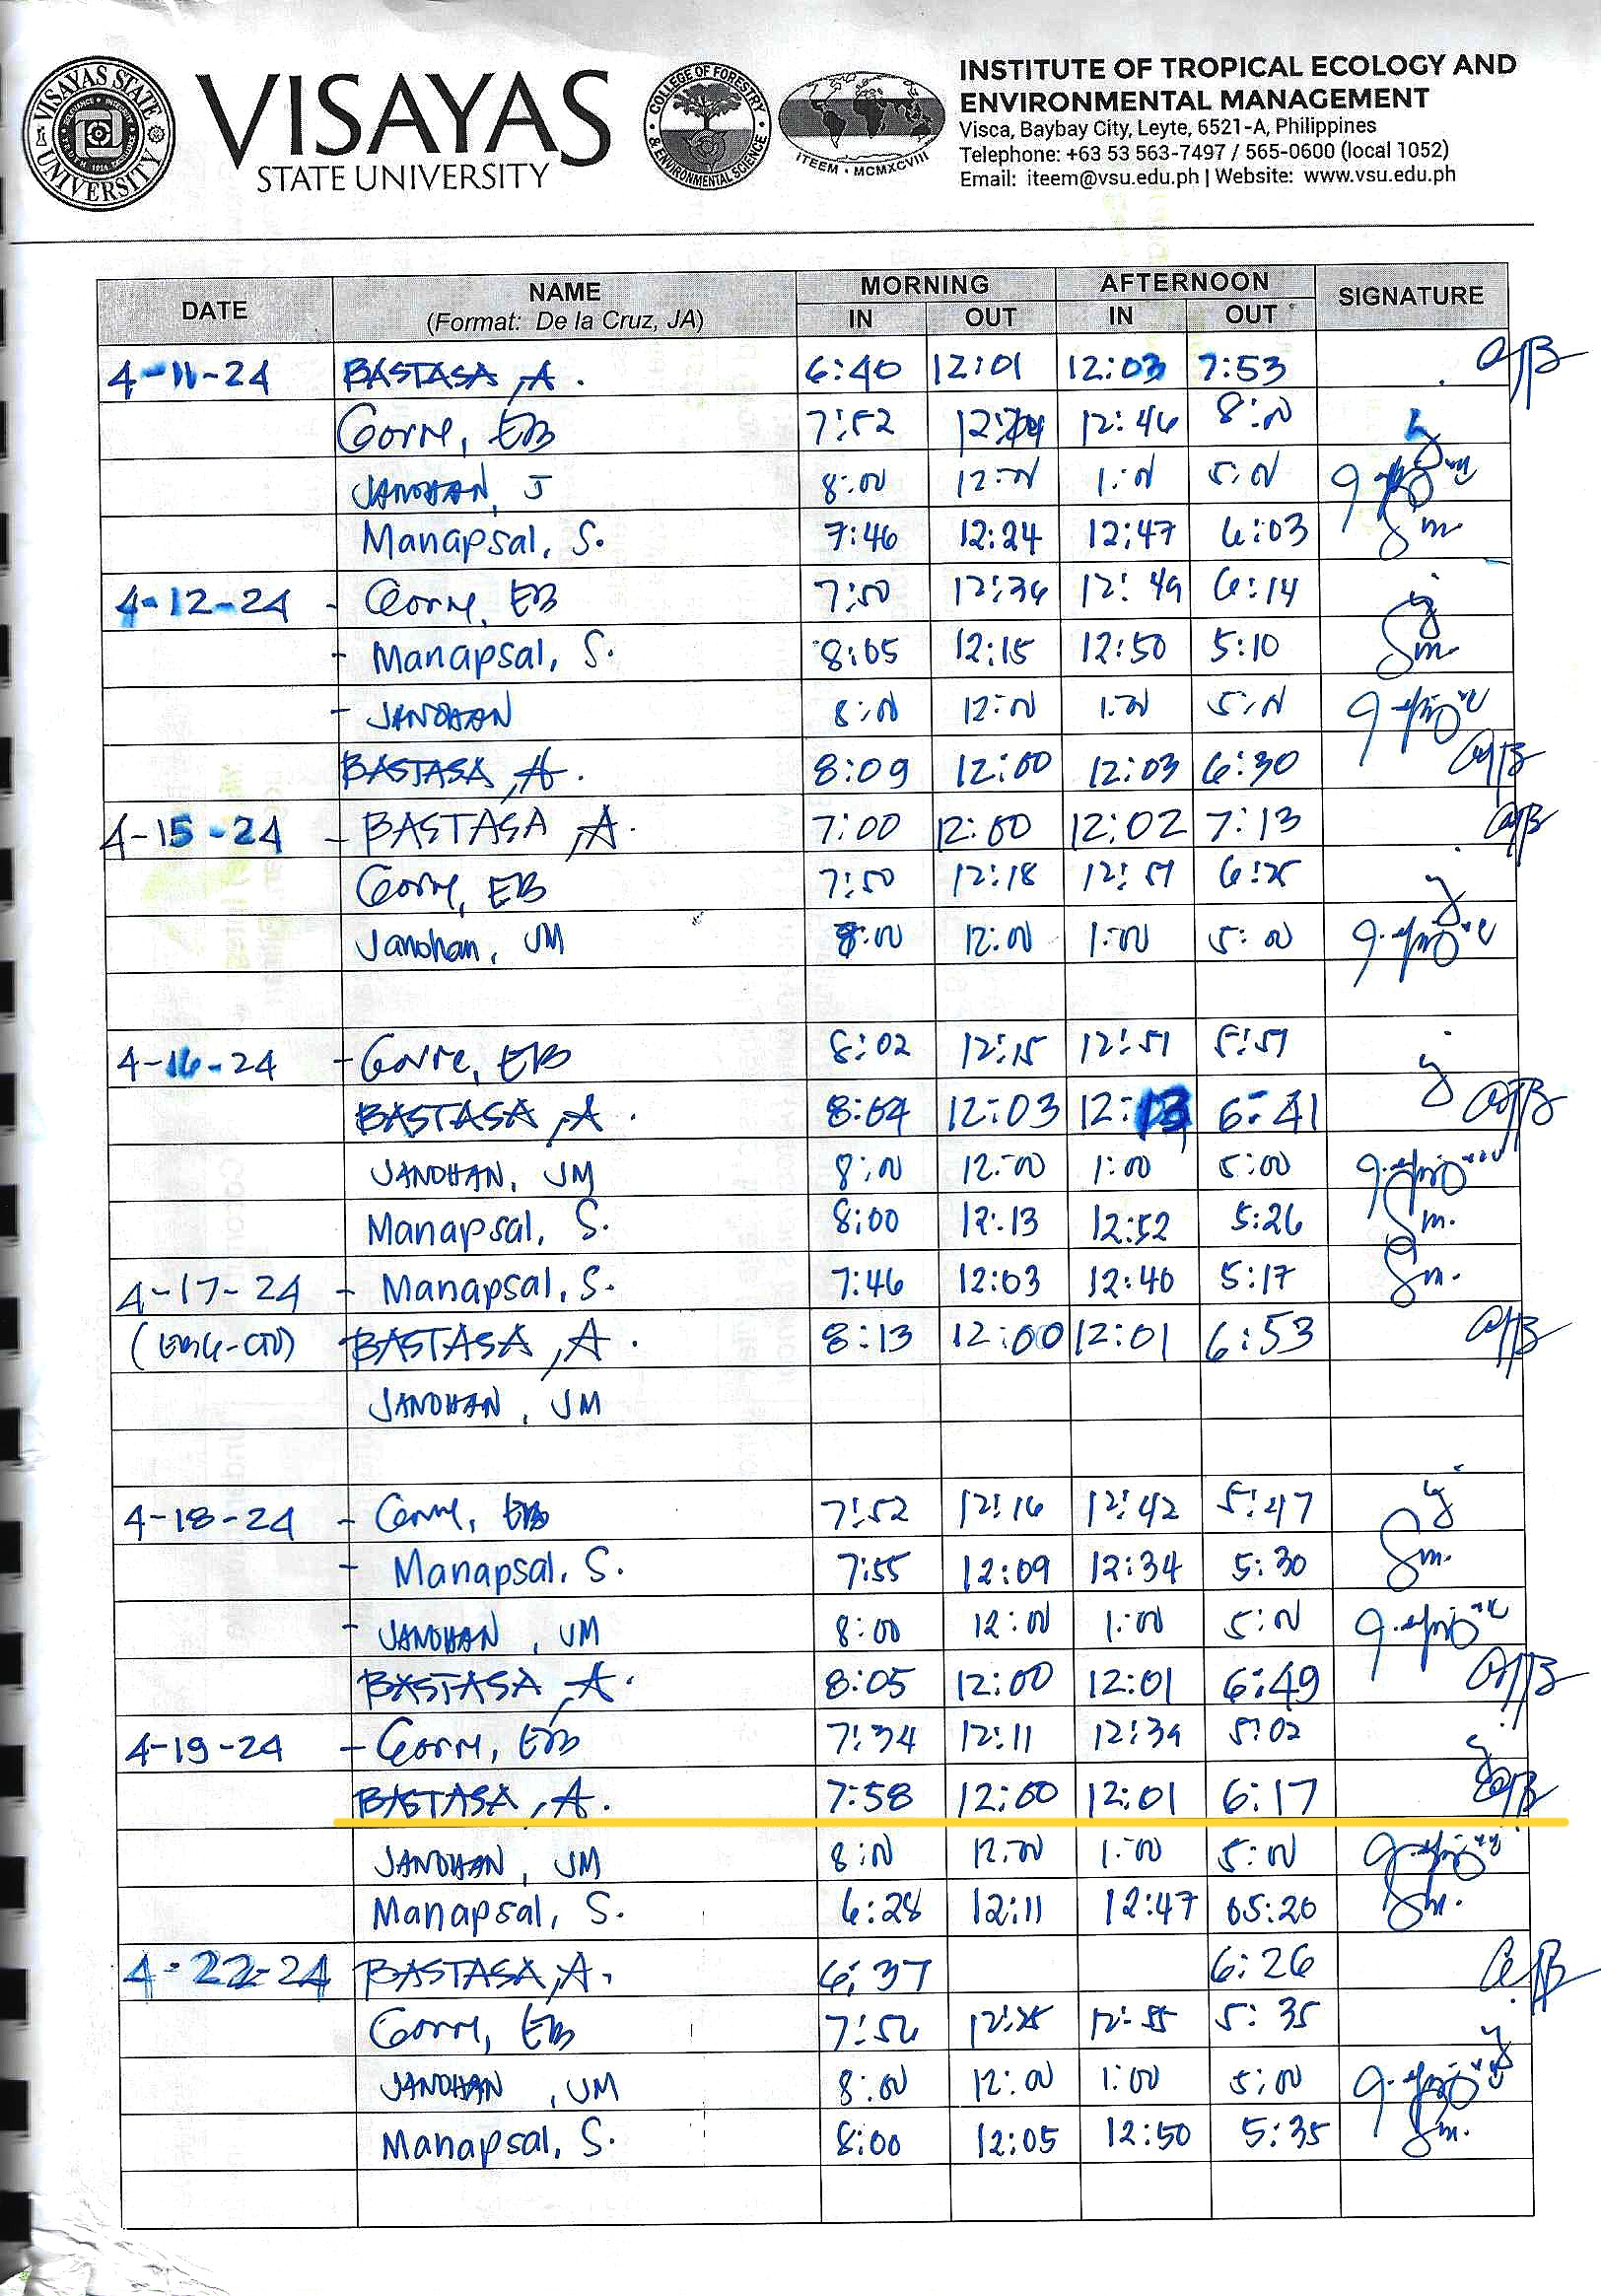 VISAYAS STATE UNIVERSITY
VISAYAS
STATE UNIVERSITY
COLLEGE OF FORESTRY & ENVIRONMENTAL SCIENCE
ITEEM • MCMXCVIII
INSTITUTE OF TROPICAL ECOLOGY AND
ENVIRONMENTAL MANAGEMENT
Visca, Baybay City, Leyte, 6521-A, Philippines
Telephone: +63 53 563-7497 / 565-0600 (local 1052)
Email: iteem@vsu.edu.ph | Website: www.vsu.edu.ph
DATE NAME (Format: De la Cruz, JA) MORNING AFTERNOON SIGNATURE
IN OUT IN OUT
4-11-24 BASTASA, A. 6:40 12:01 12:03 7:53
Gorne, EB 7:52 12:46 8:00
JANOHAN, J 8:00 12:00 1:00 5:00
Manapsal, S. 7:46 12:24 12:47 6:03 Sm
4-12-24 - Gorne, EB 7:50 12:36 12:49 6:14
- Manapsal, S. 8:05 12:15 12:50 5:10 Sm
- JANOHAN 8:00 12:00 1:00 5:00
BASTASA, A. 8:09 12:00 12:03 6:30
4-15-24 - BASTASA, A. 7:00 12:00 12:02 7:13
Gorne, EB 7:50 12:18 12:51 6:25
Janohan, JM 8:00 12:00 1:00 5:00
4-16-24 - Gorne, EB 8:02 12:15 12:51 5:51
BASTASA, A. 8:04 12:03 12:13 6:41
JANOHAN, JM 8:00 12:00 1:00 5:00
Manapsal, S. 8:00 12:13 12:52 5:26 Sm.
4-17-24 - Manapsal, S. 7:46 12:03 12:40 5:17 Sm.
(EBG-CTO) BASTASA, A. 8:13 12:00 12:01 6:53
JANOHAN, JM
4-18-24 - Gorne, EB 7:52 12:16 12:42 5:47
- Manapsal, S. 7:55 12:09 12:34 5:30 Sm.
- JANOHAN, JM 8:00 12:00 1:00 5:00
BASTASA, A. 8:05 12:00 12:01 6:49
4-19-24 - Gorne, EB 7:34 12:11 12:39 5:02
BASTASA, A. 7:58 12:00 12:01 6:17
JANOHAN, JM 8:00 12:00 1:00 5:00
Manapsal, S. 6:28 12:11 12:47 05:20 Sm.
4-22-24 BASTASA, A. 6:37 6:26
Gorne, EB 7:56 12:25 12:55 5:35
JANOHAN, JM 8:00 12:00 1:00 5:00
Manapsal, S. 8:00 12:05 12:50 5:35 Sm.